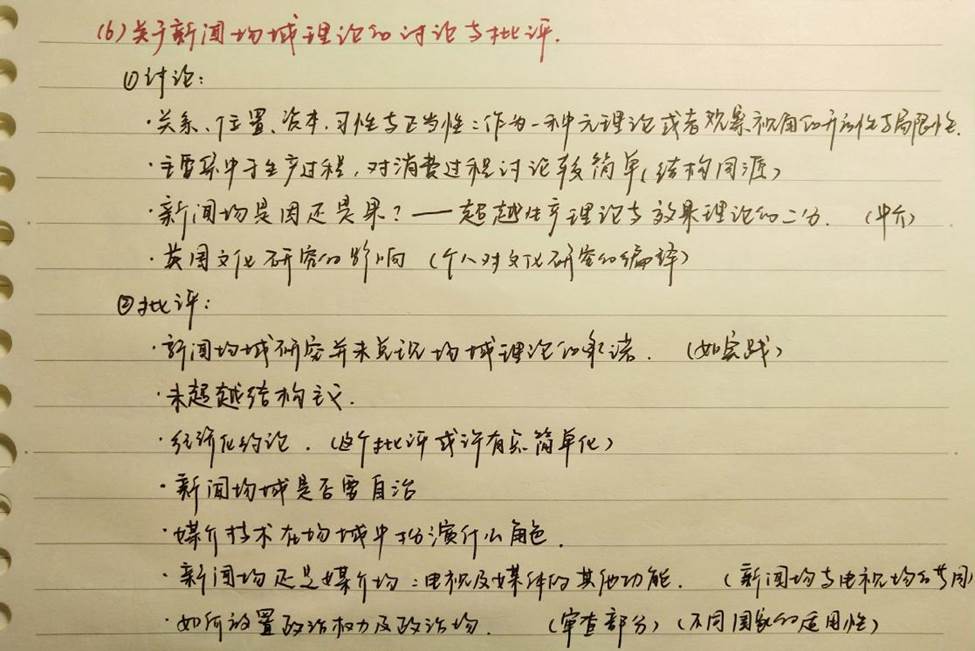 (6)关于新闻场域理论的讨论与批评.
①讨论:
·关系、位置、资本、习性与正当性:作为一种元理论或者观察视角的开放性与局限性.
·主要集中于生产过程,对消费过程讨论较简单(结构同源)
·新闻场是因还是果?——超越生产理论与效果理论的二分. (中介)
·英国文化研究的影响 (个人对文化研究的编译)
②批评:
·新闻场域研究并未兑现场域理论的承诺. (如实践)
·未超越结构主义.
·经济化约论. (这个批评或许有点简单化)
·新闻场域是否需自治
·媒介技术在场域中扮演什么角色.
·新闻场还是媒介场:电视及媒体的其他功能. (新闻场与电视场的共用)
·如何放置政治权力及政治场. (审查部分)(不同国家的适用性)